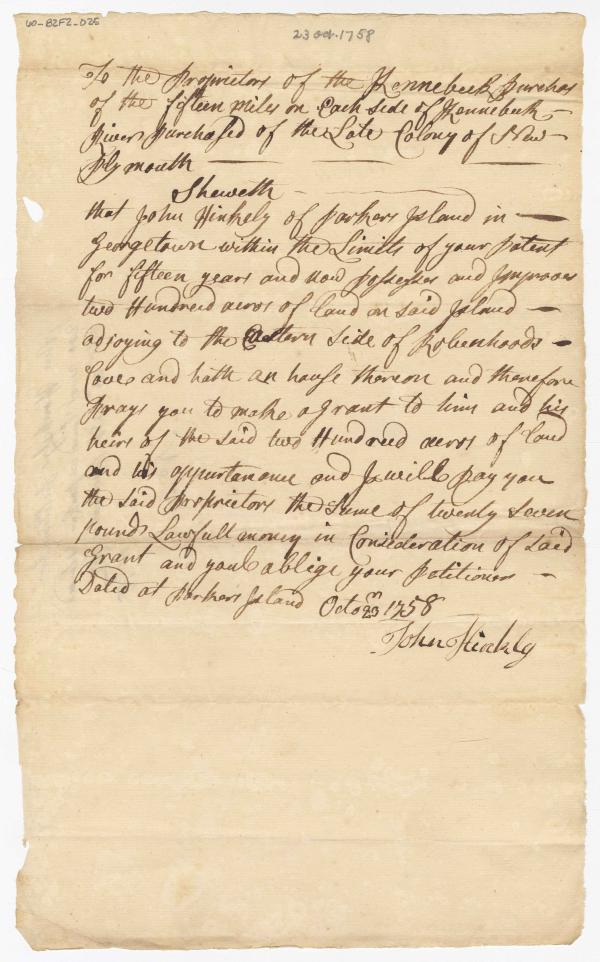 60-B2F2-025
23 oct. 1758
To the Proprietors of the Kennebeck Purchas
of the fifteen miles on Each side of Kennebeck
River Purchased of the Late Colony of New
Plymouth
Sheweth
that John Hinkely of Parkers Island in
Georgetown within the Limits of your Patent
for fifteen years and now Possesses and Improves
two Hundred acres of land on said Island
adjoying to the Eastern side of Robenhoods
Cove and hath an house thereon and therefore
Prays you to make a Grant to him and his
heirs of the said two Hundred acres of land
and his appurtanance and I will pay you
the said Proprietors the Sume of twenty Seven
pounds Lawfull money in Consideration of said
Grant and youl ablige your Petitioner
Dated at Parkers Island Octo 23 1758
John Hinkly